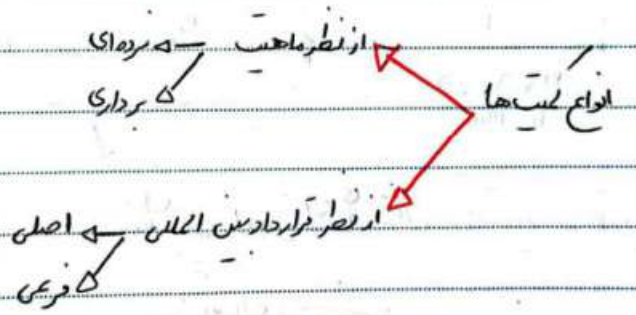 انواع کمیت‌ها
از نظر ماهیت
نرده‌ای
برداری
از نظر قرارداد بین المللی
اصلی
فرعی